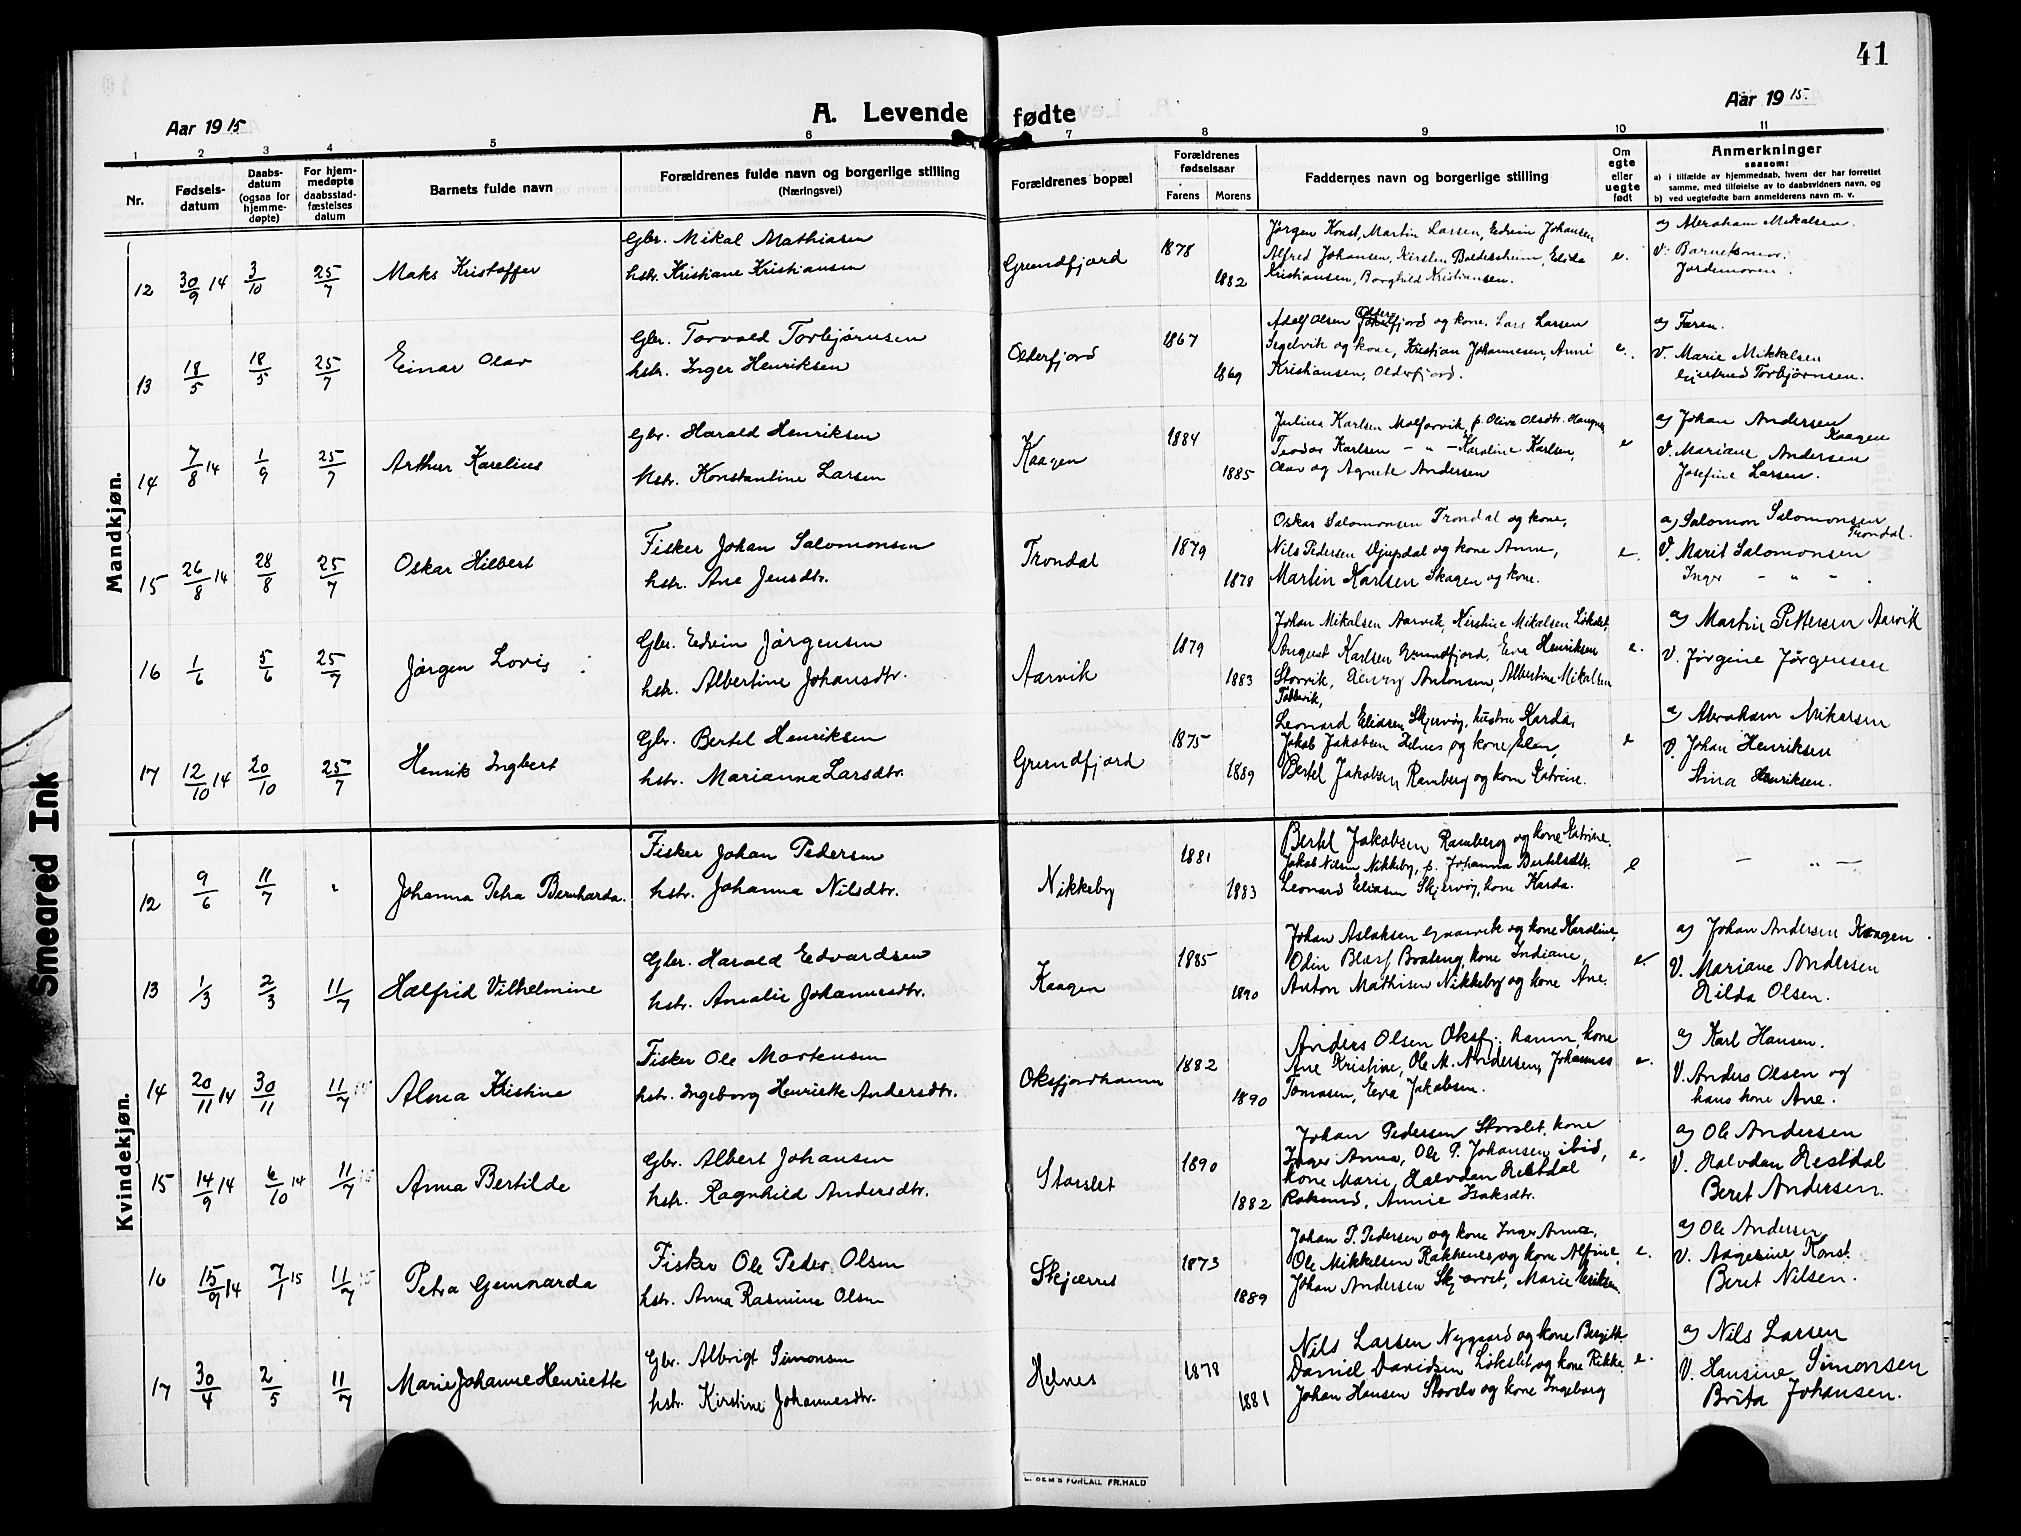 41
Aar 1915
A. Levende fødte
Aar 1915.
1 2 3 4 5 6 7 8 9 10 11
Nr.
Fødsels-
datum
Daabs-
datum
(ogsaa for
hjemme-
døpte)
For hjem-
medøpte
daabsstad-
fæstelses
datum
Barnets fulde navn
Forældrenes fulde navn og borgerlige stilling
(Næringsvei)
Forældrenes bopæl
Forældrenes
fødselsaar
Farens Morens
Faddernes navn og borgerlige stilling
Om
egte
eller
uegte
født
Anmerkninger
saasom:
a) i tilfælde av hjemmedaab, hvem der har forrettet
samme, med tilføielse av to daabsvidners navn, og
b) ved uegtefødte barn anmelderens navn m. v.
Mandkjøn.
12 30/9 14 3/10 25/7 Maks Kristoffer
Gbr. Mikal Mathiasen
hstr. Kristiane Kristiansen
Grundfjord 1878 1882
Jørgen Konst, Martin Larsen, Edvin Johansen
Alfred Johansen, Kirsten Boldevheim, Elida
Kristiansen, Borghild Kristiansen.
e.
a) Abraham Mikalsen.
V. Barnekonen.
Jordemoren.
13 18/5 18/5 25/7 Einar Olav
Gbr. Torvald Torbjørnsen
hstr. Inger Henriksen
Olderfjord 1867 1869
Adolf Olsen Olderfjord og kone, Lars Larsen
Segelvik og kone, Kristian Johannesen, Anne
Kristiansen, Olderfjord.
e.
a) Faren.
V. Marie Mikkelsen
Gjertrud Torbjørnsen.
14 7/8 14 1/9 25/7 Arthur Karelius
Gbr. Harald Henriksen
Hstr. Konstantine Larsen
Kaagen 1884 1885
Julius Karlsen Molfarvik, p. Oliva Olsdtr. Haugnes
Teodor Karlsen - " - Karoline Karlsen,
Olav og Agnete Andersen
e
a) Johan Andersen
Kaagen
V. Mariane Andersen
Josefine Larsen.
15 26/8 14 28/8 25/7 Oskar Hilbert
Fisker Johan Salomonsen
hstr. Ane Jensdtr.
Trondal 1879 1878
Oskar Salomonsen Trondal og kone,
Nils Pedersen Djupdal og kone Anne,
Martin Karlsen Skagen og kone.
e.
a) Salomon Salomonsen
Trondal.
V. Marit Salomonsen
Inger - " - .
16 1/6 5/6 25/7 Jørgen Lovis
Gbr. Edvin Jørgensen
hstr. Albertine Johansdtr.
Aarvik 1879 1883
Johan Mikalsen Aarvik, Kirstine Mikalsen Løkslet,
August Karlsen Grundfjord, Eva Henriksen
Storvik, Henry Antonsen, Albertine Mikalsen
e.
a) Martin Pettersen Aarvik
V. Jørgine Jørgensen
17 12/10 14 20/10 25/7 Henrik Ingbert
Gbr. Bertel Henriksen
hstr. Marianna Larsdtr.
Grundfjord 1875 1889
Leonard Eliasen Skjervøy, hustru Karda,
Jakob Jakobsen Helnes og kone Elen,
Bertel Jakobsen Ramberg og kone Katrine.
e
a) Abraham Mikalsen
V. Johan Henriksen
Stina Henriksen.
Kvindekjøn.
12 9/6 11/7 " Johanna Petra Bernharda.
Fisker Johan Pedersen
hstr. Johanna Nilsdtr.
Nikkeby 1881 1883
Bertel Jakobsen Ramberg og kone Katrine.
Jakob Nilsen Nikkeby, p. Johanna Bertelsdtr.
Leonard Eliasen Skjervøy, kone Karda.
e
- " -
13 1/3 2/3 11/7 Halfrid Vilhelmine
Gbr. Harald Edvardsen
hstr. Amalie Johannesdtr.
Kaagen 1885 1890
Johan Aslaksen Gaarvik og kone Karoline,
Odin Blæsf Boateng, kone Indiane,
Anton Mathisen Nikkeby og kone Ane.
e.
a) Johan Andersen Kaagen.
V. Mariane Andersen
Hilda Olsen.
14 20/11 14 30/11 11/7 15 Alma Kristine
Fisker Ole Mortensen
hstr. Ingeborg Henriette Andersdtr.
Oksfjordhamn 1882 1890
Anders Olsen Oksfj. hamn, kone
Ane Kristine, Ole M. Andersen, Johannes
Tomasen, Eva Jakobsen.
e.
a) Karl Hansen.
V. Anders Olsen og
hans kone Ane.
15 14/9 14 6/10 14 11/7 15 Anna Bertilde
Gbr. Albert Johansen
hstr. Ragnhild Andersdtr.
Storslet 1890 1882
Johan Pedersen Storslet, kone
Inger Anna, Ole P. Johansen ibid,
kone Marie, Halvdan Hestdal
Roksund, Annie Isaksdtr.
e.
a) Ole Andersen
V. Halvdan Hestdal
Beret Andersen.
16 15/9 14 7/1 15 11/7 15 Petra Gennarda
Fisker Ole Peder Olsen
hstr. Anna Rasmine Olsen
Skjærvet 1873 1889
Johan P. Pedersen og kone Inger Anna,
Ole Mikkelsen Rakkenes, og kone Alfine,
Johan Andersen Skjærvet, Marie Eriksen
e.
a) Ole Andersen
V. Aagesine Konst.
Beret Nilsen.
17 30/4 2/5 11/7 Marie Johanne Henriette
Gbr. Albrigt Simonsen
hstr. Kirstine Johannesdtr.
Helnes 1878 1881
Nils Larsen Nygaard og kone Bergitte
Daniel Davidsen Løkslet, og kone Rikke
Johan Hansen Storslv og kone Ingeborg
e.
a) Nils Larsen
V. Hansine Simonsen
Brita Johansen.
E. SEM'S FORLAG, FR.HALD
Smeared Ink